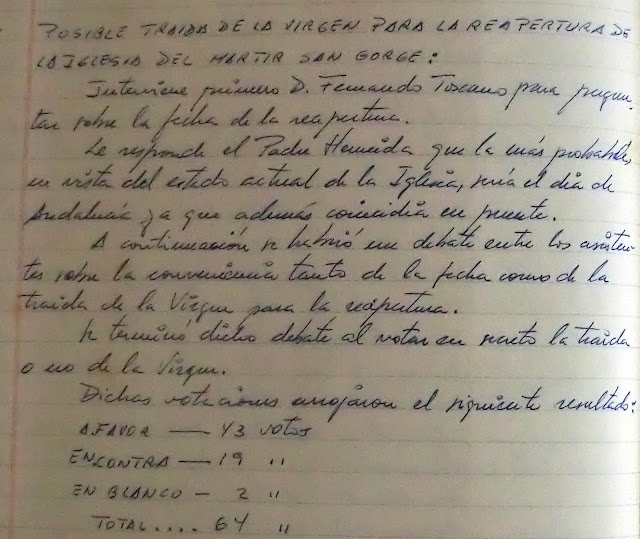 POSIBLE TRAIDA DE LA VIRGEN PARA LA REAPERTURA DE
LA IGLESIA DEL MARTIR SAN GORGE:
Interviene primero D. Fernando Toscano para pregun-
tar sobre la fecha de la reapertura.
Le responde el Padre Hermida que la más probable,
en vista del estado actual de la Iglesia, sería el día de
Andalucía ya que además coincidía en puente.
A continuación se habrió un debate entre los asisten-
tes sobre la conveniencia tanto de la fecha como de la
traida de la Virgen para la reapertura.
Se terminó dicho debate al votar en secreto la traida
o no de la Virgen.
Dichas votaciones arrojaron el siguiente resultado:
A FAVOR — 43 votos
EN CONTRA — 19 "
EN BLANCO — 2 "
TOTAL.... 64 "